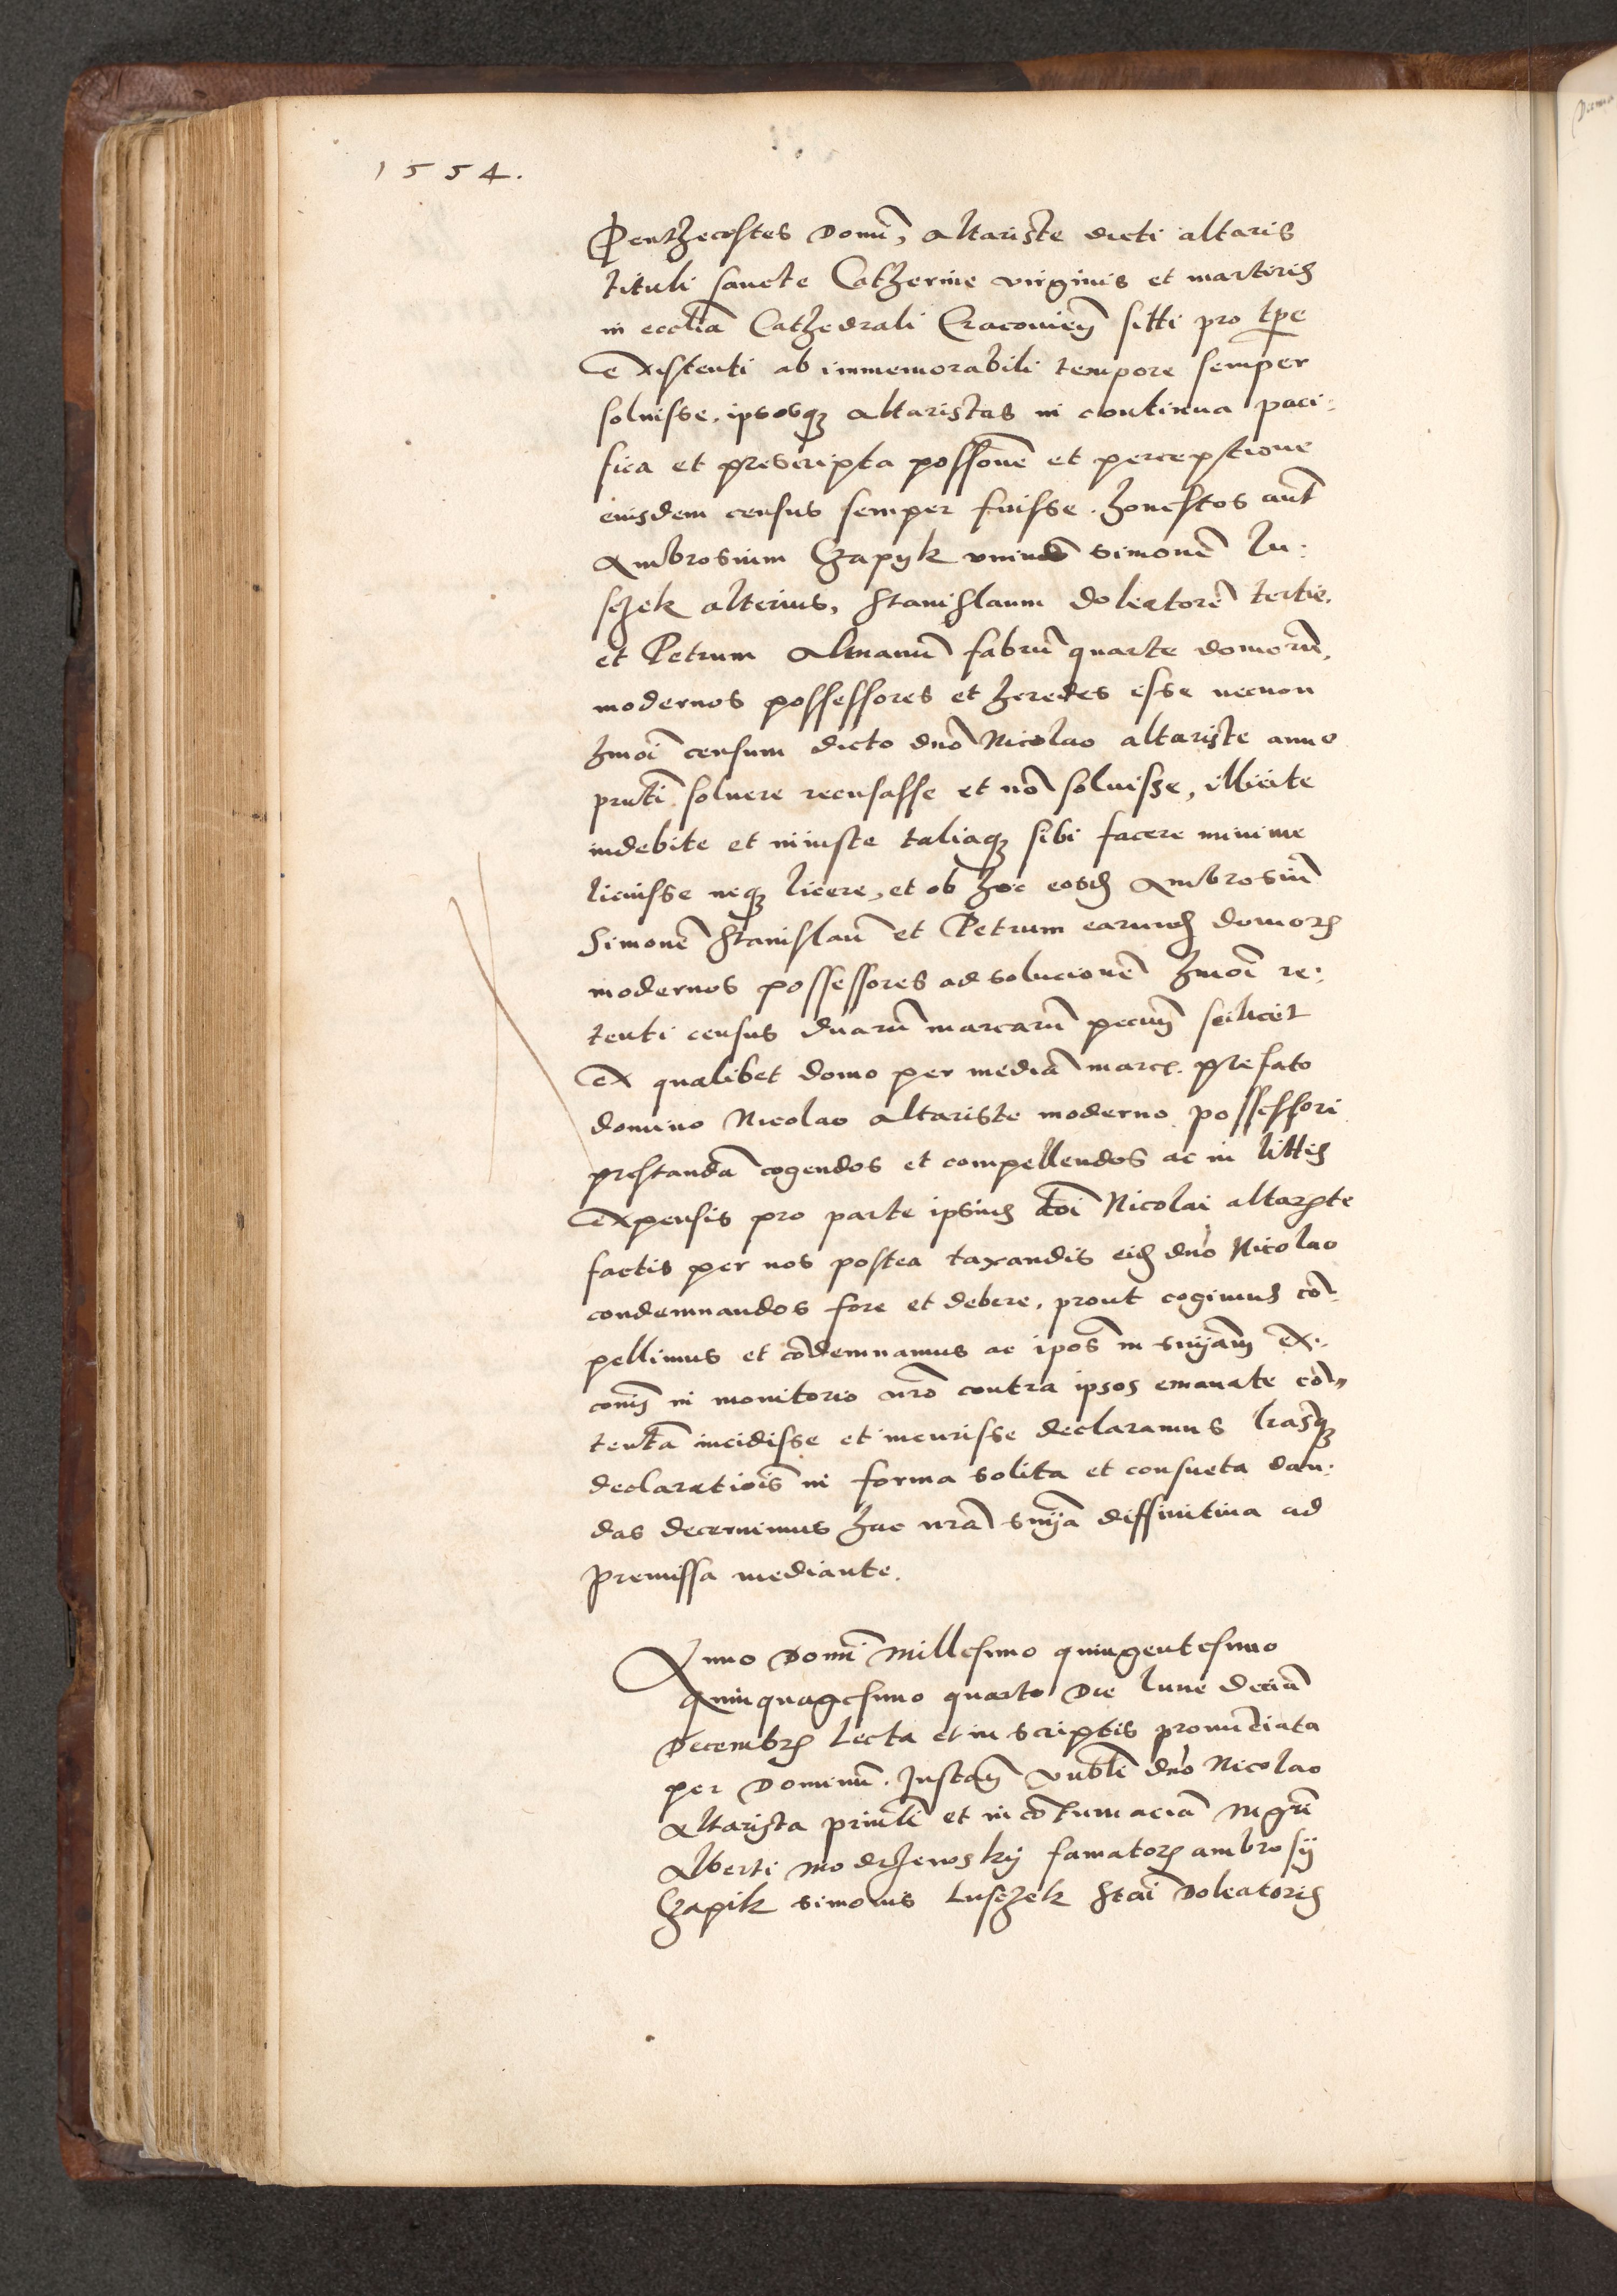 1554.
Penthecostes Domi, altariste dicti altaris
tituli sancte Catherine virginis et martiris
in ecclia Cathedrali Cracovien sitti pro tpe
existenti ab immemorabili tempore semper
soluisse, ipsosq altaristas in continua paci:
fica et prescripta possone et perceptione
eiusdem census semper fuisse. honestos aut
Ambrosium Czapyk unius Simone Lu:
sczek alterius, Stanislaum doleatore tertie,
et Petrum Almanu fabru quarte domoru,
modernos possessores et heredes esse necnon
hmoi censum dicto dno Nicolao altariste anno
pnti soluere recusasse et no soluisse, illicite
indebite et iniuste taliaq sibi facere minime
licuisse neq licere, et ob hoc eosd Ambrosiu
Simone Stanislau et Petrum earund domor
modernos possessores ad solucione hmoi re:
tenti census duaru marcaru pecun scilicet
ex qualibet domo per media marc. prefato
domino Nicolao altariste moderno possessori
prestanda cogendos et compellendos ac in littis
expensis pro parte ipsius doi Nicolai altariste
factis per nos postea taxandis eid dno Nicolao
condemnandos fore et debere, prout cogimus co
pellimus et codemnamus ac ipos in snijam ex:
cois in monitorio nro contra ipsos emanate co
tenta incidisse et incurisse declaramus lrasq
declaratiois in forma solita et consueta dan:
das decernimus hac nra snija diffinitiva ad
premissa mediante.
Anno Domi Millesimo quingentesimo
quinquagesimo quarto Die lune decia
Decembr lecta et in scriptis pronuciata
per Dominu. Instan vnbli dno Nicolao
Altarista princli et in cotumacia Mgri
Alberti Modrzewsky famator ambrosij
Czapik simonis Lusczek Stai Doleatoris